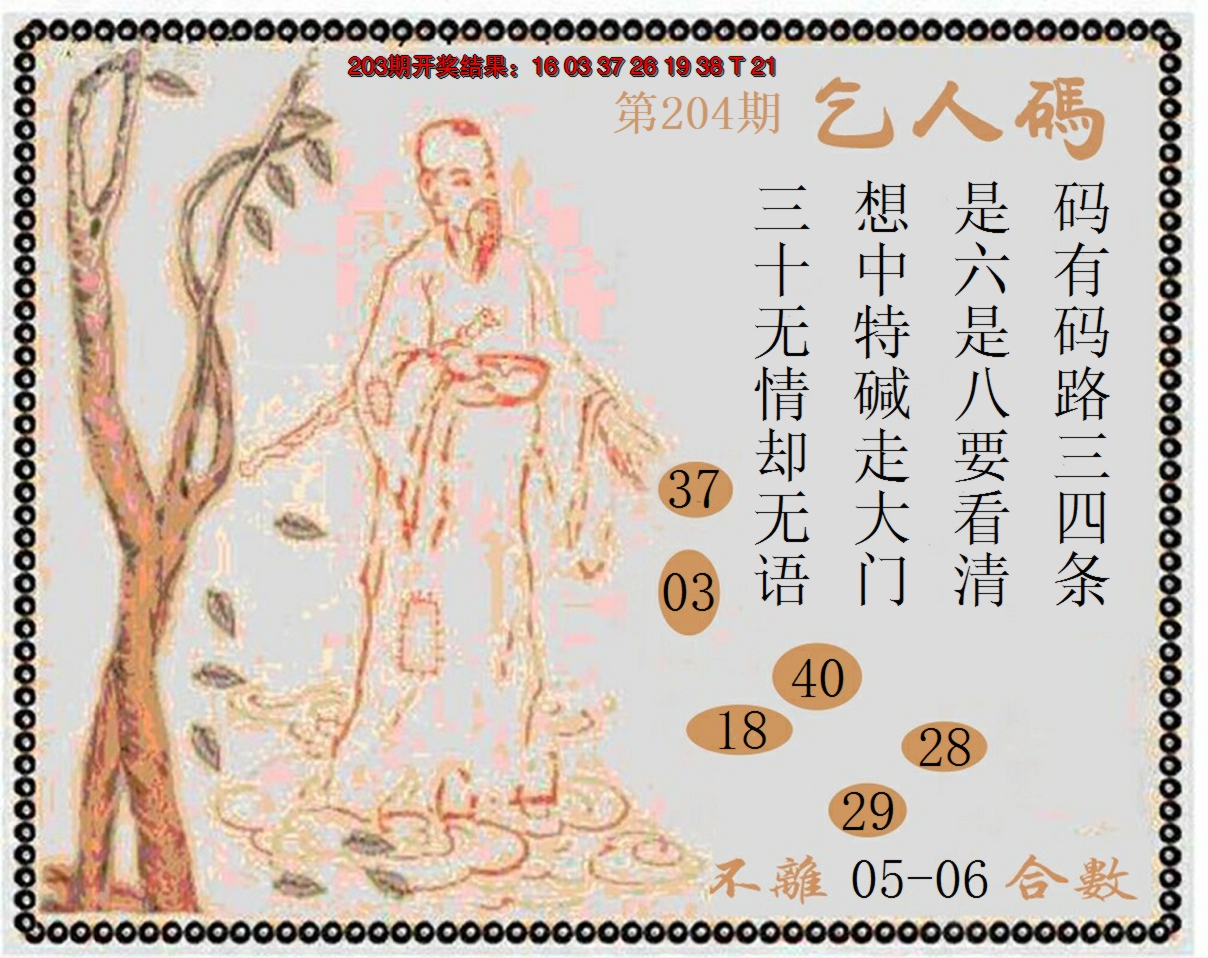 203期开奖结果：16 03 37 26 19 38 T 21
第204期 乞人碼
码有码路三四条
是六是八要看清
想中特碱走大门
三十无情却无语
37
03
40
18
28
29
不離 05-06 合數